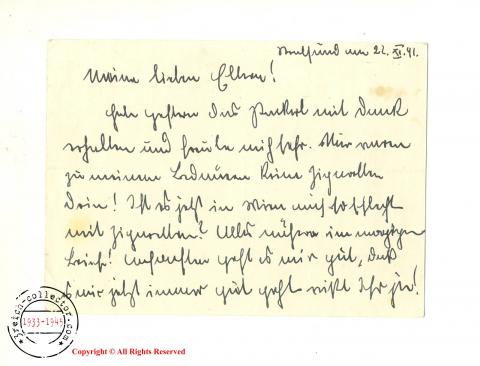 Stralsund am 22. XI. 41.
Meine lieben Eltern!
Habe gestern das Packerl mit Dank
erhalten und freute mich sehr. Nur waren
zu meinem Bedauern keine Zigaretten
drin! Ist es jetzt in Wien auch so schlecht
mit Zigaretten? Alles nähere im morgigen
Briefe! Ansonsten geht es mir gut, daß
es mir jetzt immer gut geht wißt Ihr ja!
3reich-collector.com
1933-1945
Copyright © All Rights Reserved